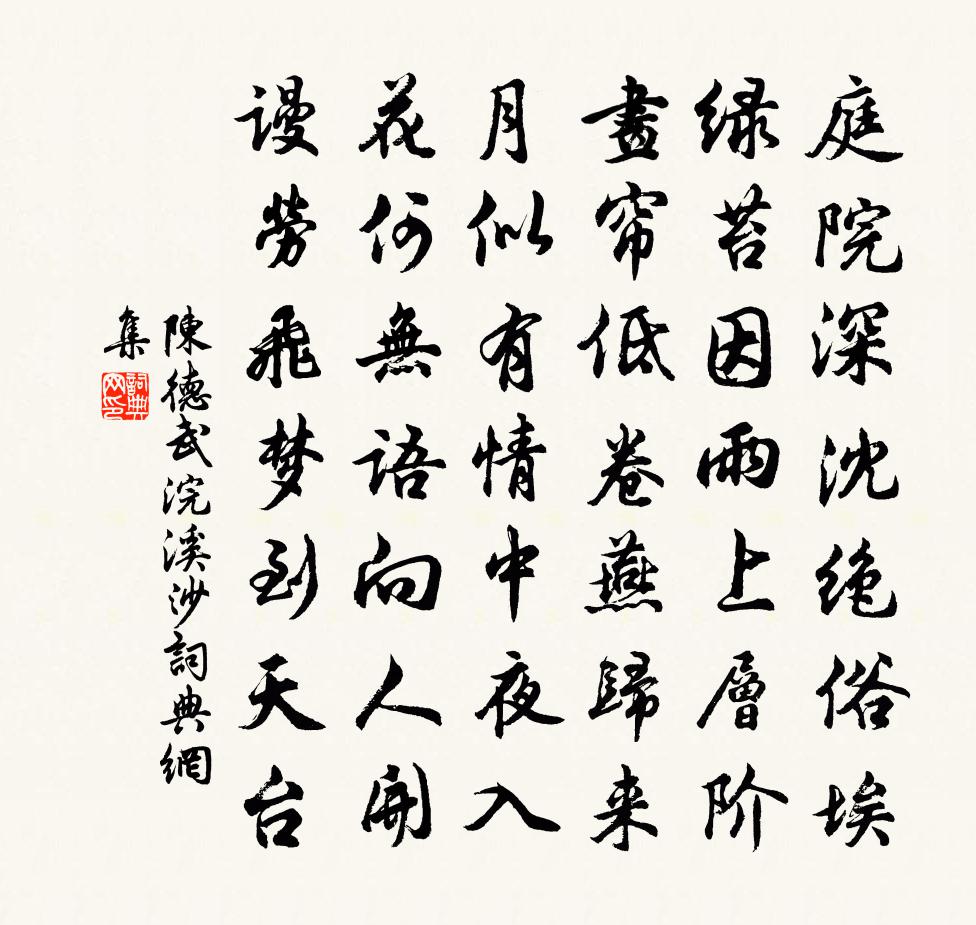 庭院深沈绝俗埃
绿苔因雨上層阶
畫帘低卷燕歸来
月似有情中夜入
花何無語向人開
谩勞飛梦到天台
陳德武浣溪沙詞典網
集
詞典
网印